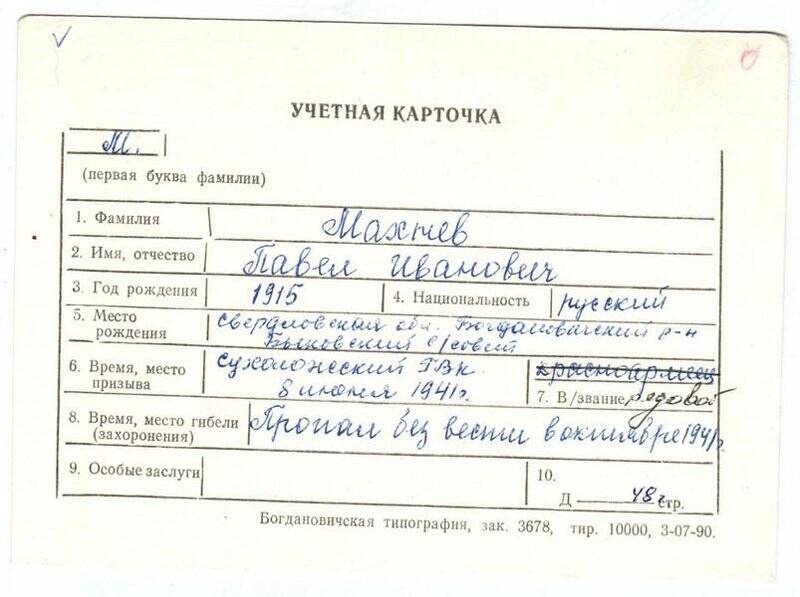 УЧЕТНАЯ КАРТОЧКА
М.
(первая буква фамилии)
1. Фамилия Махнев
2. Имя, отчество Павел Иванович
3. Год рождения 1915 4. Национальность русский
5. Место рождения Свердловская обл. Богдановичский р-н
Быковский с/совет
6. Время, место призыва Сухоложский ГВК
8 июля 1941г.
красноармеец
7. В/звание рядовой
8. Время, место гибели (захоронения) Пропал без вести в октябре 1941г.
9. Особые заслуги
10.
Д 48 стр.
Богдановичская типография, зак. 3678, тир. 10000, 3-07-90.